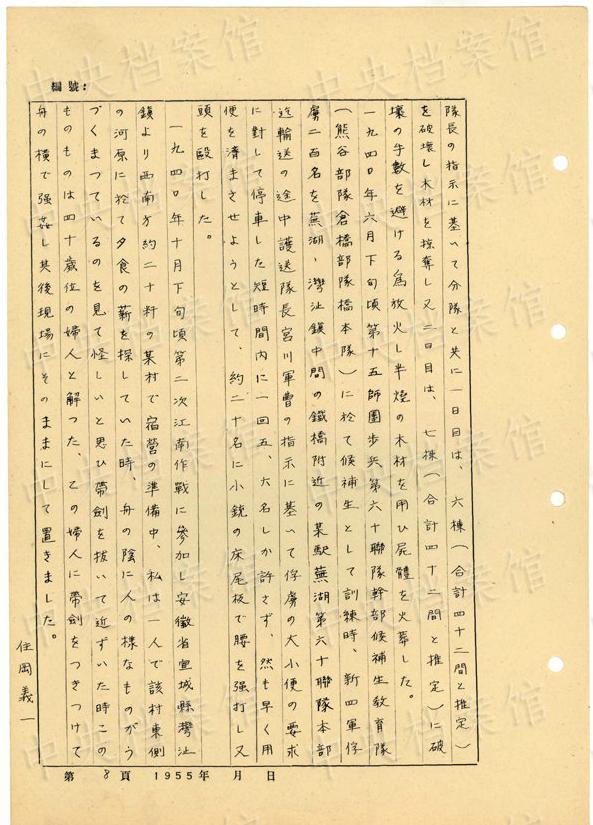 編號:
隊長の指示に基いて分隊と共に一日目は、六棟(合計四十二間と推定)
を破壊し木材を掠奪し又二日目は、七棟(合計四十二間と推定)に破
壊の手数を避ける為放火し半焼の木材を用ひ屍體を火葬した。
一九四〇年六月下旬頃第十五師團歩兵第六十聯隊幹部候補生教育隊
(熊谷部隊倉橋部隊橋本隊)に於て候補生として訓練時、新四軍俘
虜二百名を蕪湖、灣沚鎮中間の鐵橋附近の某駅蕪湖第六十聯隊本部
迄輸送の途中護送隊長宮川軍曹の指示に基いて俘虜の大小便の要求
に対して停車した短時間内に一回五、六名しか許さず、然も早く用
便を済まさせようとして、約二十名に小銃の床尾板で腰を强打し又
頭を殴打した。
一九四〇年十月下旬頃第二次江南作戰に參加し安徽省宣城縣灣沚
鎮より西南方約二十粁の某村で宿營の準備中、私は一人で該村東側
の河原に於て夕食の薪を探していた時、舟の陰に人の様なものがう
づくまつているのを見て怪しいと思ひ帶劍を拔いて近ずいた時この
ものものは四十歳位の婦人と解つた、この婦人に帶劍をつきつけて
舟の横で强姦し其後現場にそのままにして置きました。
住岡義一
第 8 頁 1955年 月 日
中央档案馆